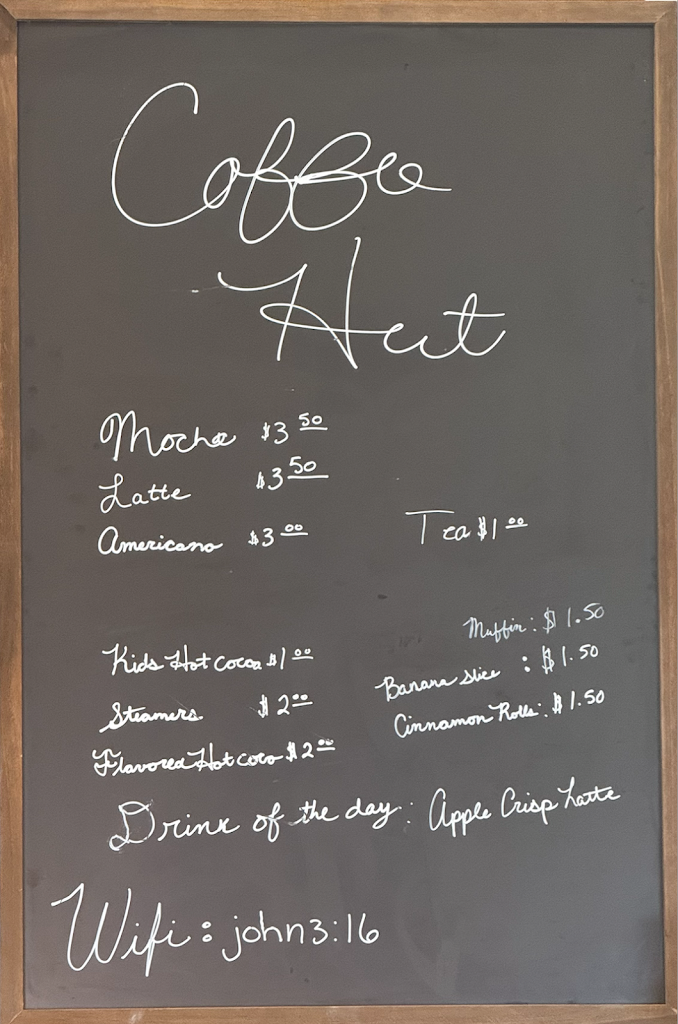 Coffee
Hut
Mocha $3 50
Latte $3 50
Americano $3 00
Tea $1 00
Kids Hot Cocoa $1 00
Steamers $2 00
Flavored Hot coco $2 00
Muffin: $1.50
Banana slice : $1.50
Cinnamon Rolls: $1.50
Drink of the day: Apple Crisp Latte
Wifi: john3:16